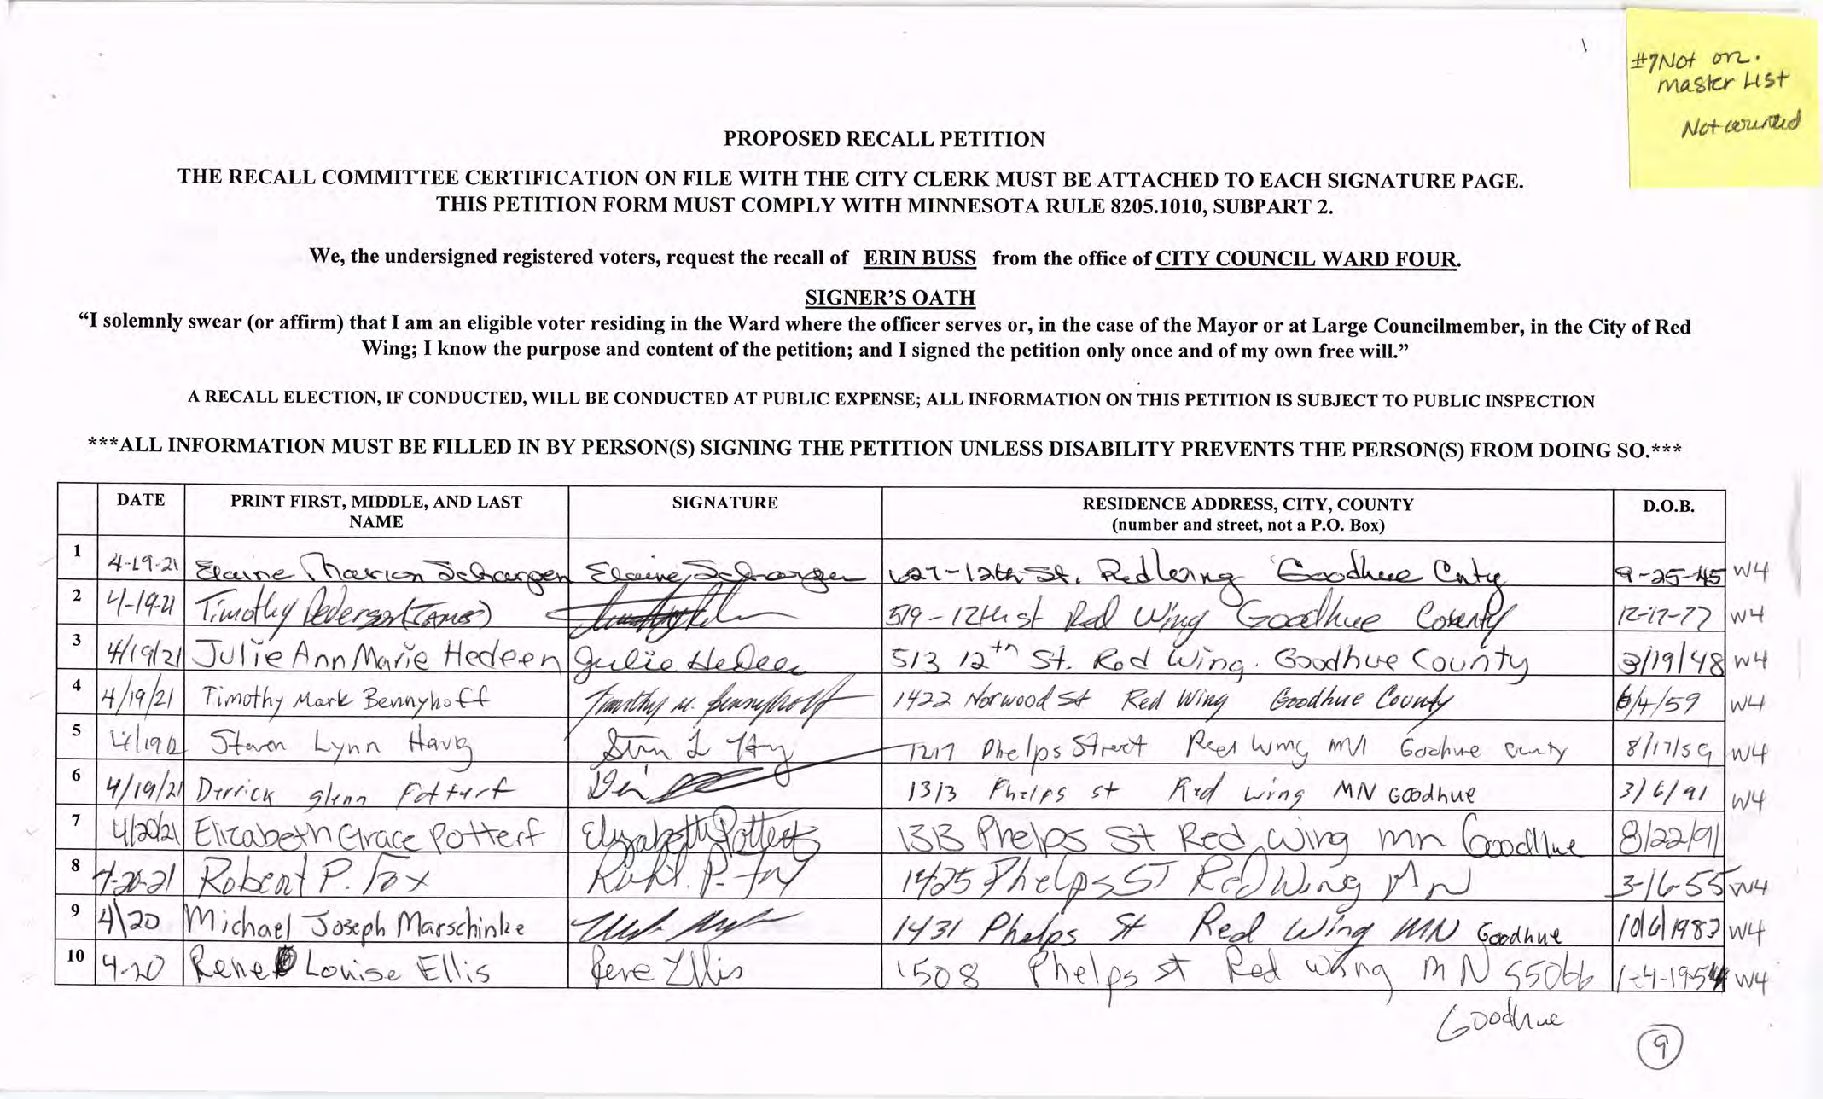 #7 Not on.
Master List
Not counted
PROPOSED RECALL PETITION
THE RECALL COMMITTEE CERTIFICATION ON FILE WITH THE CITY CLERK MUST BE ATTACHED TO EACH SIGNATURE PAGE.
THIS PETITION FORM MUST COMPLY WITH MINNESOTA RULE 8205.1010, SUBPART 2.
We, the undersigned registered voters, request the recall of ERIN BUSS from the office of CITY COUNCIL WARD FOUR.
SIGNER'S OATH
“I solemnly swear (or affirm) that I am an eligible voter residing in the Ward where the officer serves or, in the case of the Mayor or at Large Councilmember, in the City of Red
Wing; I know the purpose and content of the petition; and I signed the petition only once and of my own free will.”
A RECALL ELECTION, IF CONDUCTED, WILL BE CONDUCTED AT PUBLIC EXPENSE; ALL INFORMATION ON THIS PETITION IS SUBJECT TO PUBLIC INSPECTION
***ALL INFORMATION MUST BE FILLED IN BY PERSON(S) SIGNING THE PETITION UNLESS DISABILITY PREVENTS THE PERSON(S) FROM DOING SO.***
DATE PRINT FIRST, MIDDLE, AND LAST NAME SIGNATURE RESIDENCE ADDRESS, CITY, COUNTY (number and street, not a P.O. Box) D.O.B.
1 4-19-21 Elaine Marion Elaine 12th St. Red Wing Goodhue Cnty 9-25-45 W4
2 4-19-21 Timothy Pederson 519-12th st Red Wing Goodhue County 12-17-77 W4
3 4/19/21 Julie Ann Marie Hedeen Julie Hedeen 513 12th St. Red Wing. Goodhue County 3/19/48 W4
4 4/19/21 Timothy Mark Bennyhoff Timothy M. Bennyhoff 1422 Norwood St Red Wing Goodhue County 6/4/59 W4
5 4/19/21 Steven Lynn Haug 1217 Phelps Street Red Wing MN Goodhue County 8/17/59 W4
6 4/19/21 Derrick glenn Potterf 1313 Phelps st Red wing MN Goodhue 3/6/91 W4
7 4/20/21 Elizabeth Grace Potterf Elizabeth Potterf 1313 Phelps St Red Wing mn Goodhue 8/22/91
8 4-20-21 Robert P. Fox Robt. P. Fox 1425 Phelps ST Red Wing MN 3-16-55 W4
9 4\20 Michael Joseph Marschinke 1431 Phelps St Red Wing MN Goodhue 10/6/1983 W4
10 4-20 Rene Louise Ellis Rene Ellis 1508 Phelps st Red wing MN 55066 1-4-1954 W4
Goodhue
9